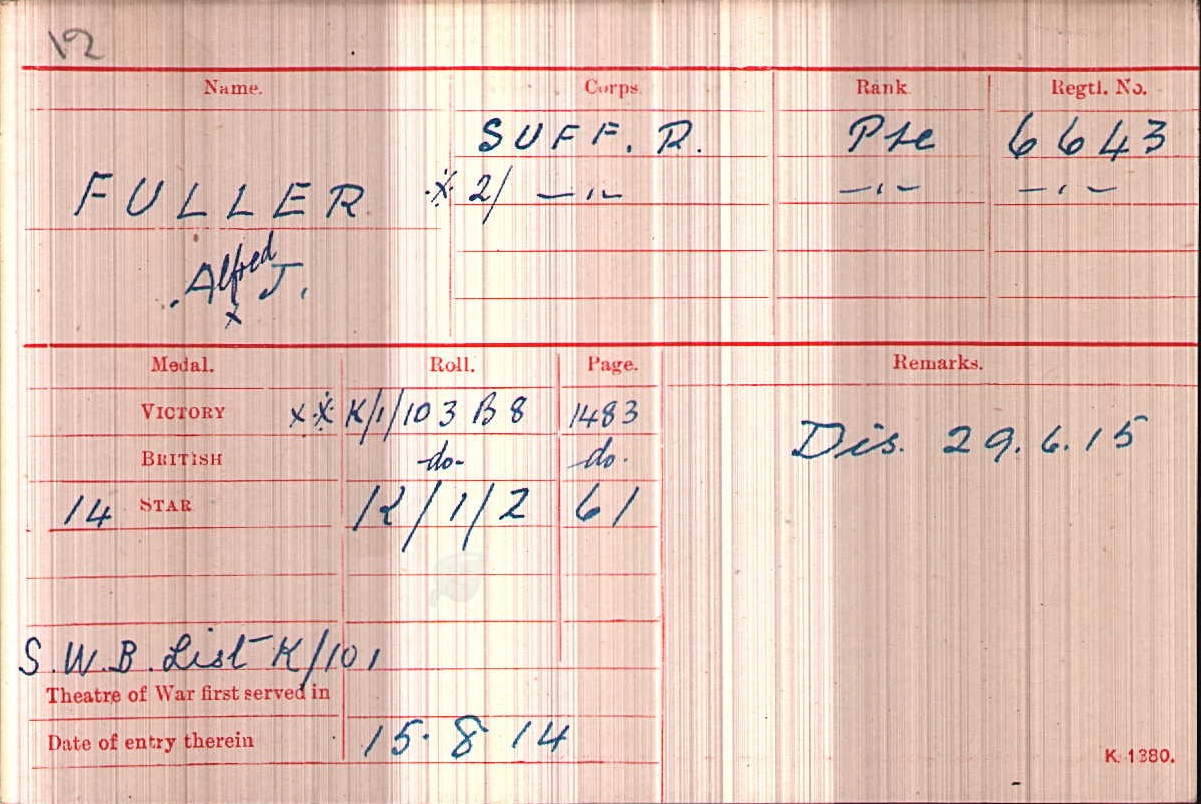 12
Name. Corps. Rank Regtl. No.
SUFF. R. Pte 6643
FULLER ·x· 2/ —"— —"— —"—
Alfred J.
x
Medal. Roll. Page. Remarks.
VICTORY x ·x· K/1/103 B8 1483
Dis. 29.6.15
BRITISH -do- do.
14 STAR K/1/2 61
S.W.B. List K/101
Theatre of War first served in
Date of entry therein 15.8.14
K. 1380.